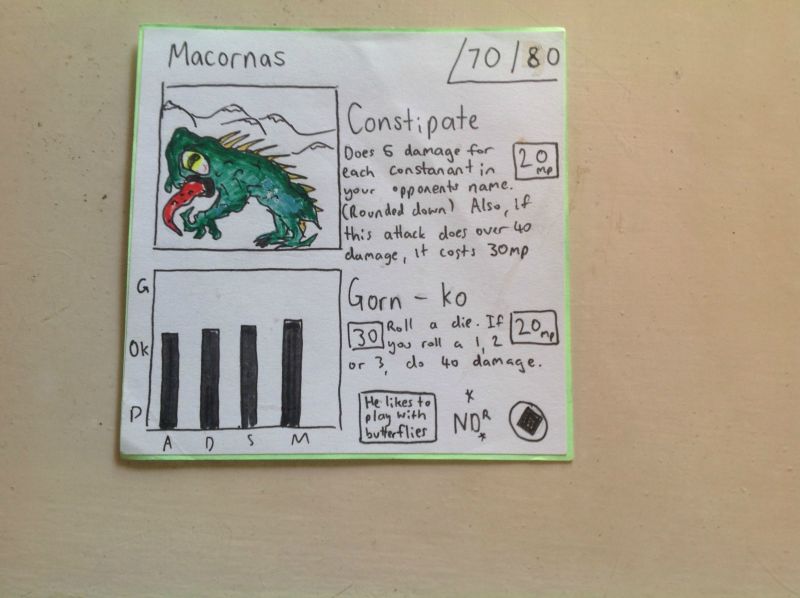 Macornas
/70/80
Constipate
Does 5 damage for
each constanant in
your opponents name.
(Rounded down) Also, if
this attack does over 40
damage, it costs 30mp
20
mp
G
Ok
P
A D S M
Gorn - ko
30
Roll a die. If
you roll a 1, 2
or 3, do 40 damage.
20mp
He likes to
play with
butterflies
*
NDR
*